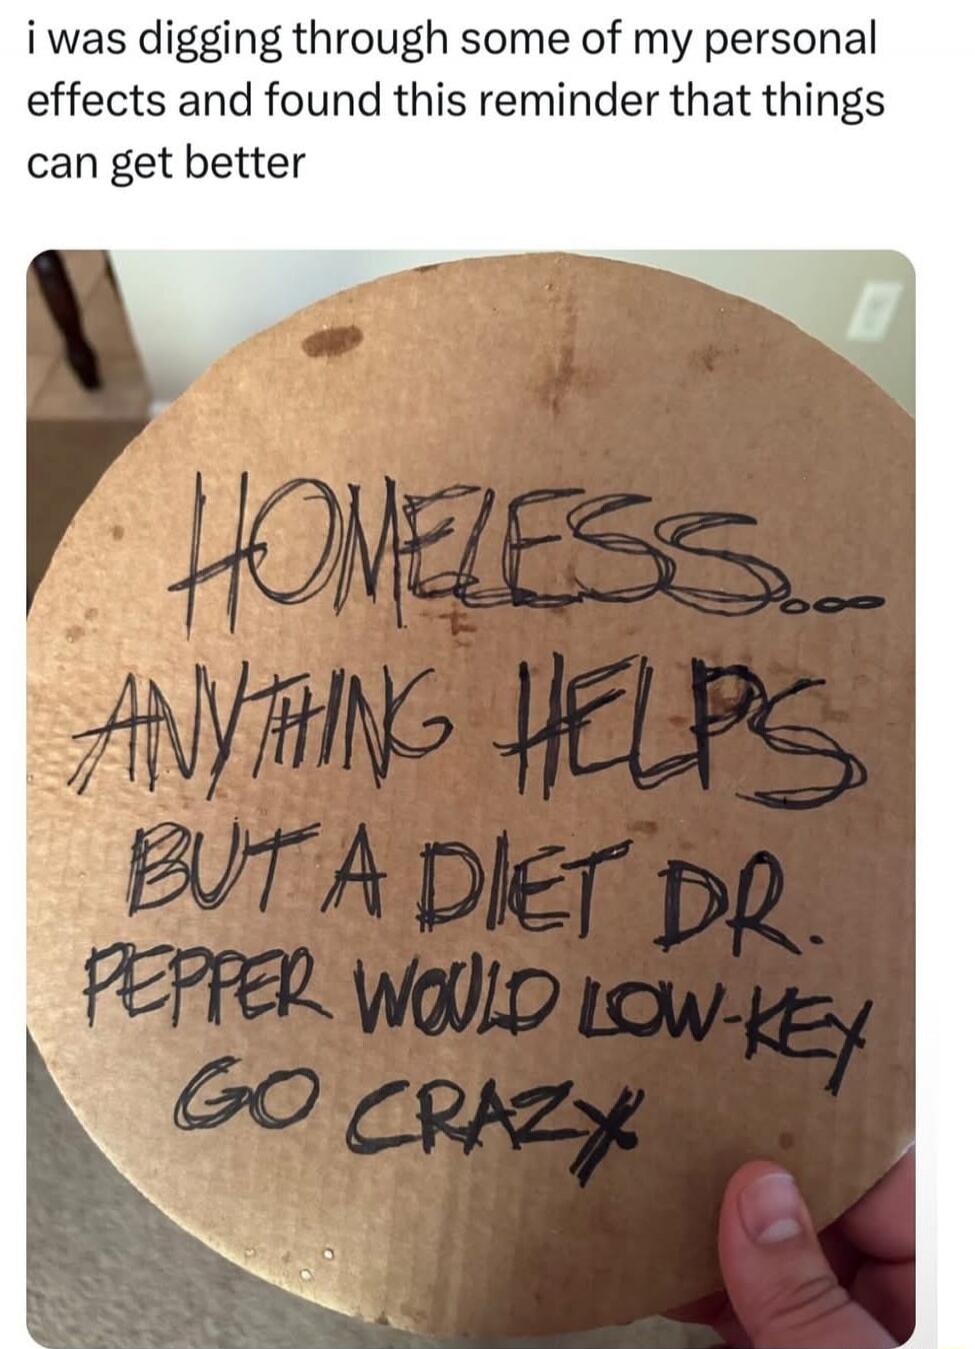 i was digging through some of my personal
effects and found this reminder that things
can get better
HOMELESS...
ANYTHING HELPS
BUT A DIET DR.
PEPPER WOULD LOW-KEY
GO CRAZY